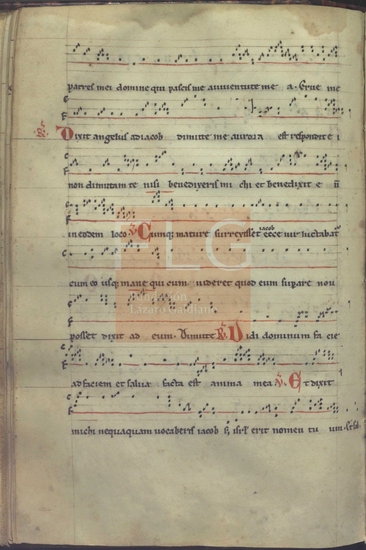 patres mei domine qui pascis me a iuventute me a. Erue me
R. Dixit angelus ad iacob dimitte me aurora est respondit e i
non dimittam te nisi benedixeris mi chi et benedixit e ii
in eodem loco V. Cumque mature surrexisset iacob ecce vir luctabat
cum eo usque mane qui cum videret quod eum superare non
posset dixit ad eum. Dimitte R. Vidi dominum fa cie
ad faciem et salva facta est anima mea V. Et dixit
michi nequaquam vocaberis iacob s; isrl erit nomen tu um.
FLG
Lázaro Galdiano